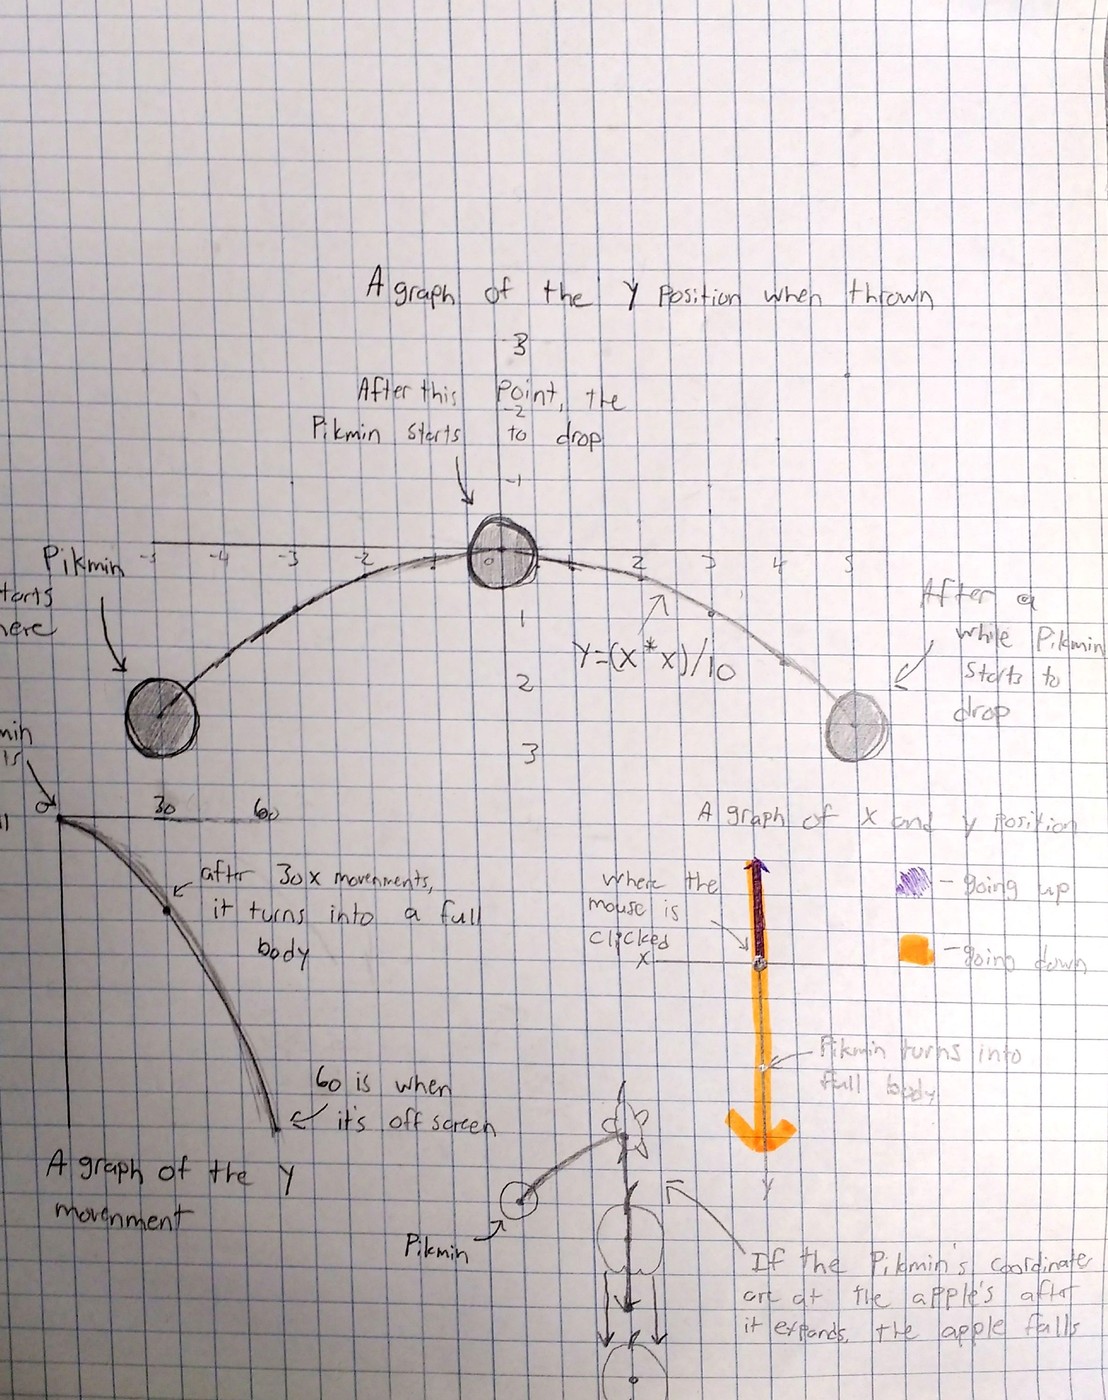 A graph of the Y Position when thrown
3
After this Point, the
-2
Pikmin starts to drop
-1
Pikmin
-5 -4 -3 -2 0 2 3 4 5
starts
here
After a
while Pikmin
starts to
drop
1
Y=(X*X)/10
2
3
0 30 60
A graph of X and y Position
after 30x movenments,
it turns into a full
body
where the
mouse is
clicked
X
- going up
- going down
Pikmin turns into
full body
60 is when
it's off screen
A graph of the Y
movenment
Y
Pikmin
If the Pikmin's coordinate
are at the apple's after
it expands, the apple falls